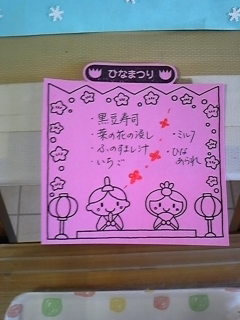 ひなまつり
・黒豆寿司
・菜の花の浸し
・ふのすまし汁
・いちご
・ミルク
・ひな
あられ